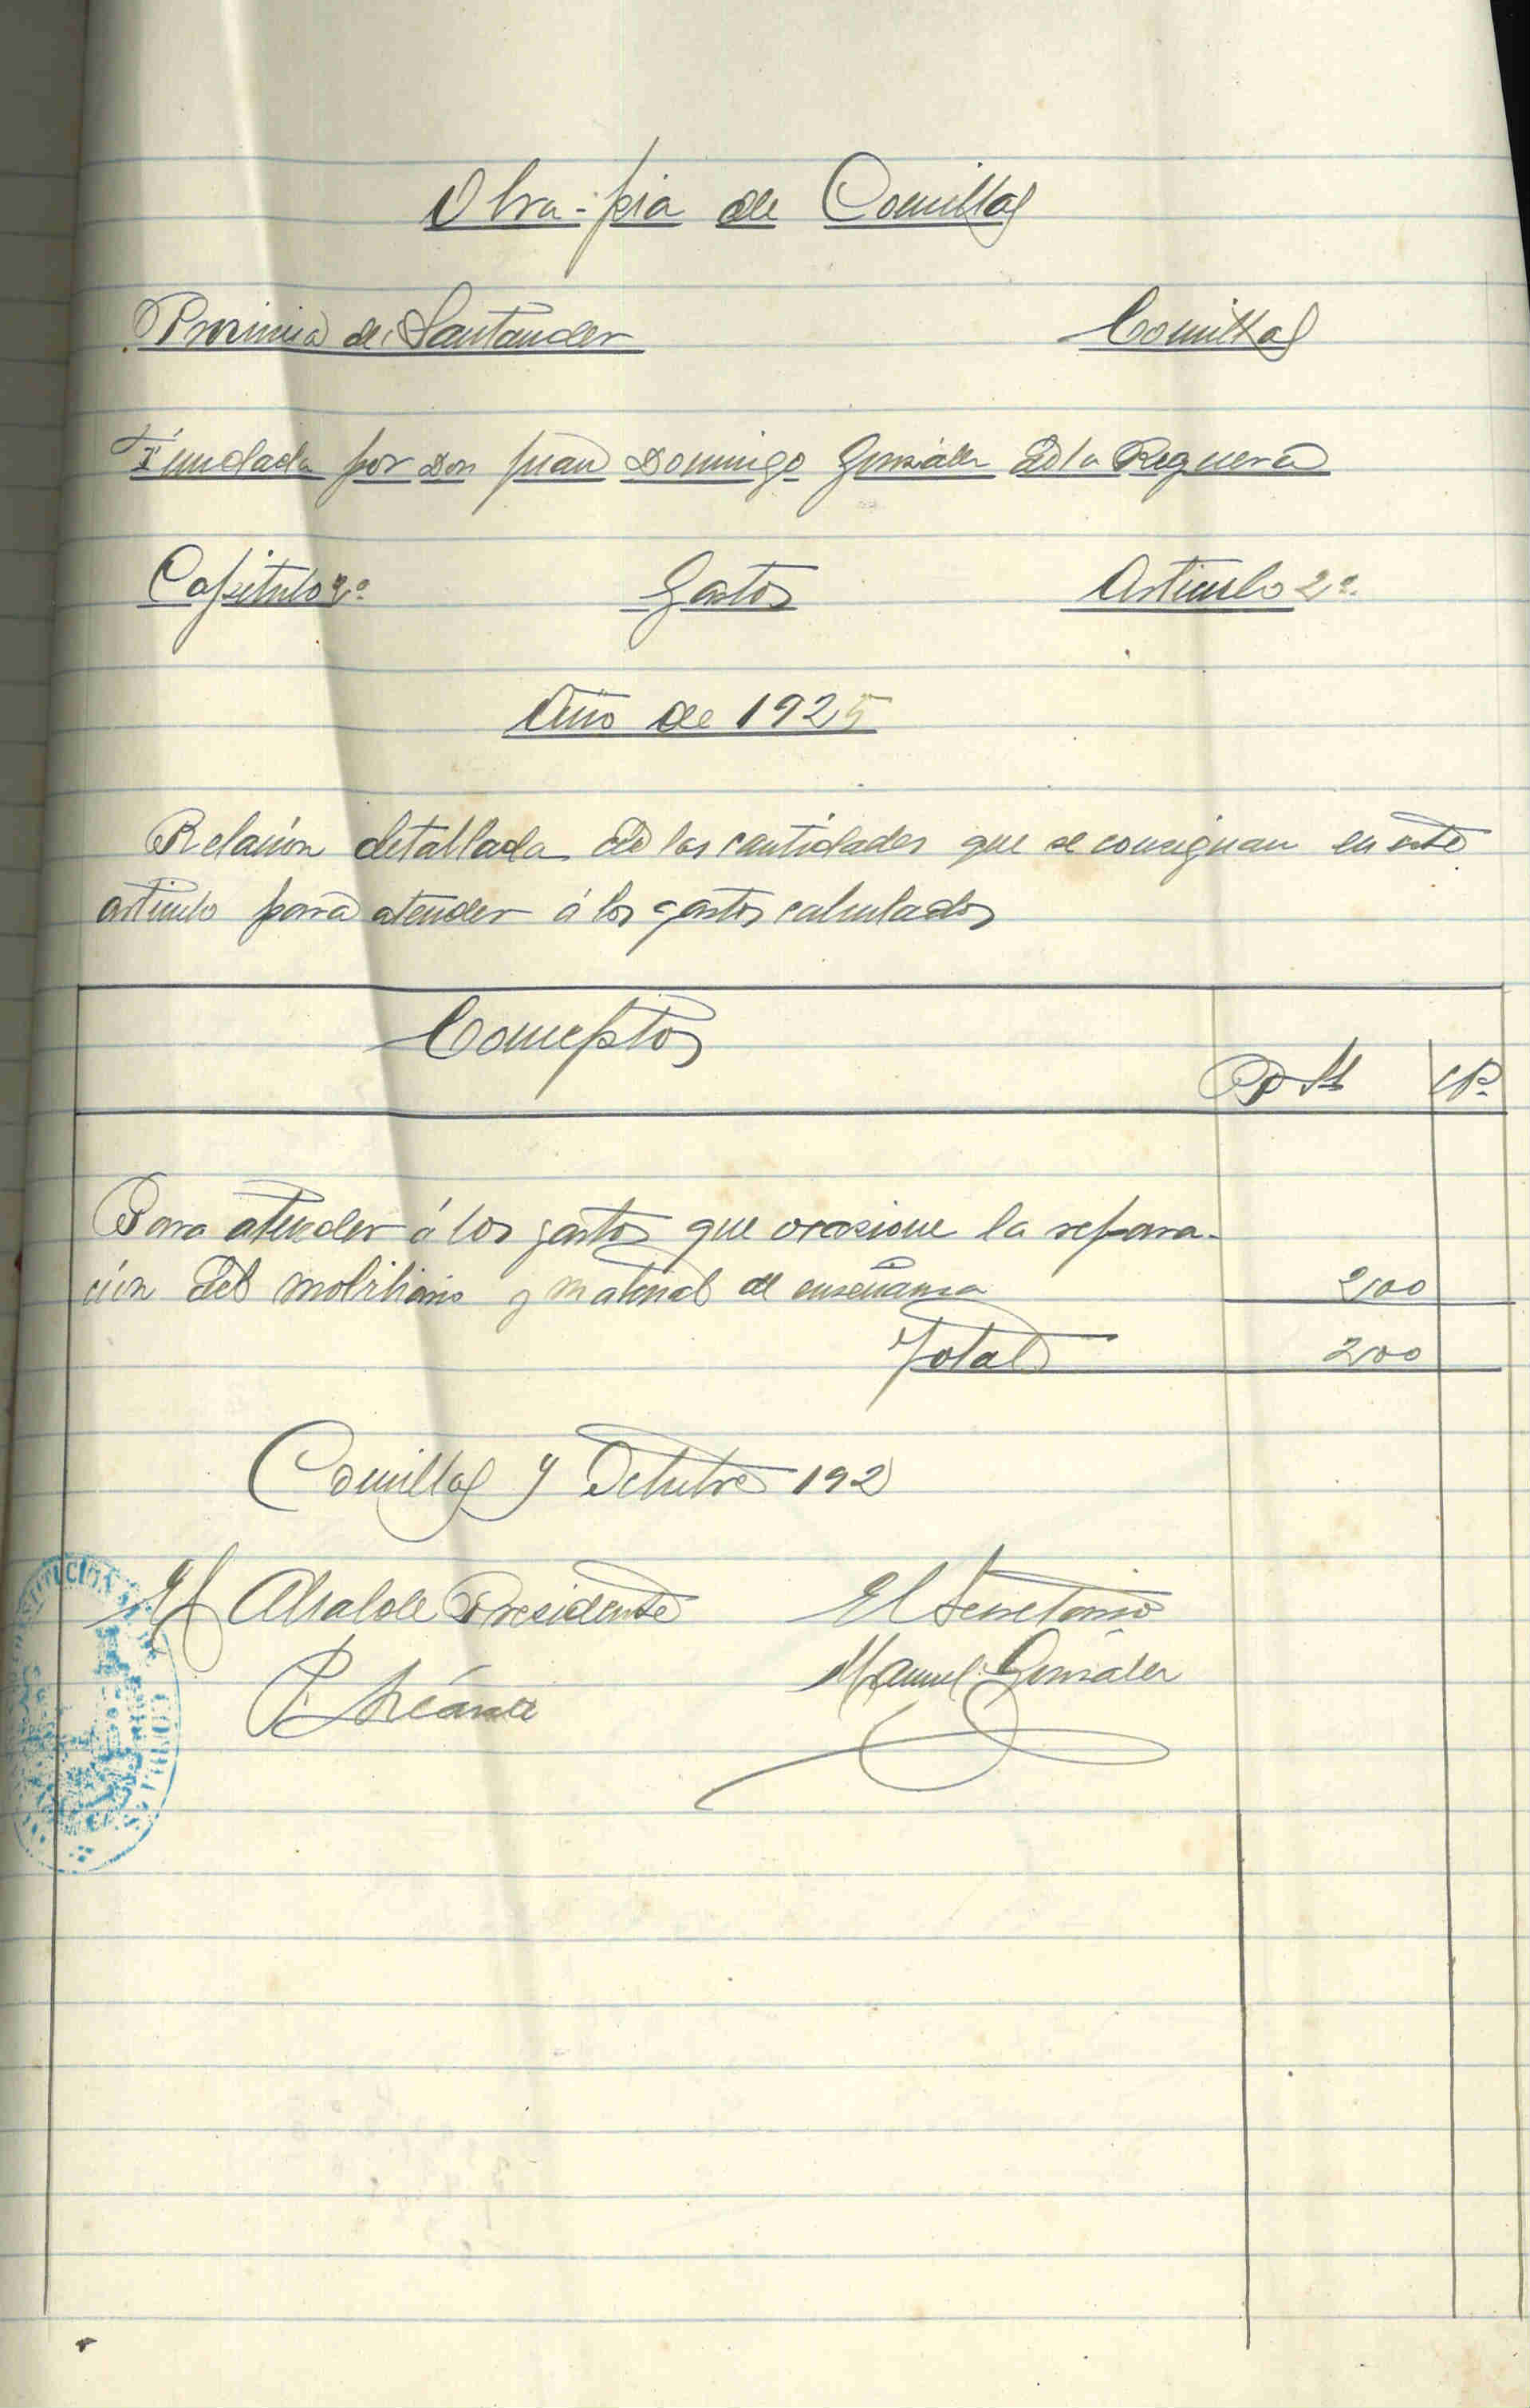 Obra-pia de Comillas
Provincia de Santander Comillas
Fundada por Don Juan Domingo González de la Reguera
Capitulo 2º Gastos Articulo 2º.
Año de 1925
Relación detallada de las cantidades que se consignan en este
articulo para atender á los gastos calculados
Conceptos
Pts Cs
Para atender á los gastos que ocasione la repara-
ción del mobiliario y material de enseñanza 200
Total 200
Comillas 9 Octubre 192
El Alcalde Presidente El Secretario
Manuel González